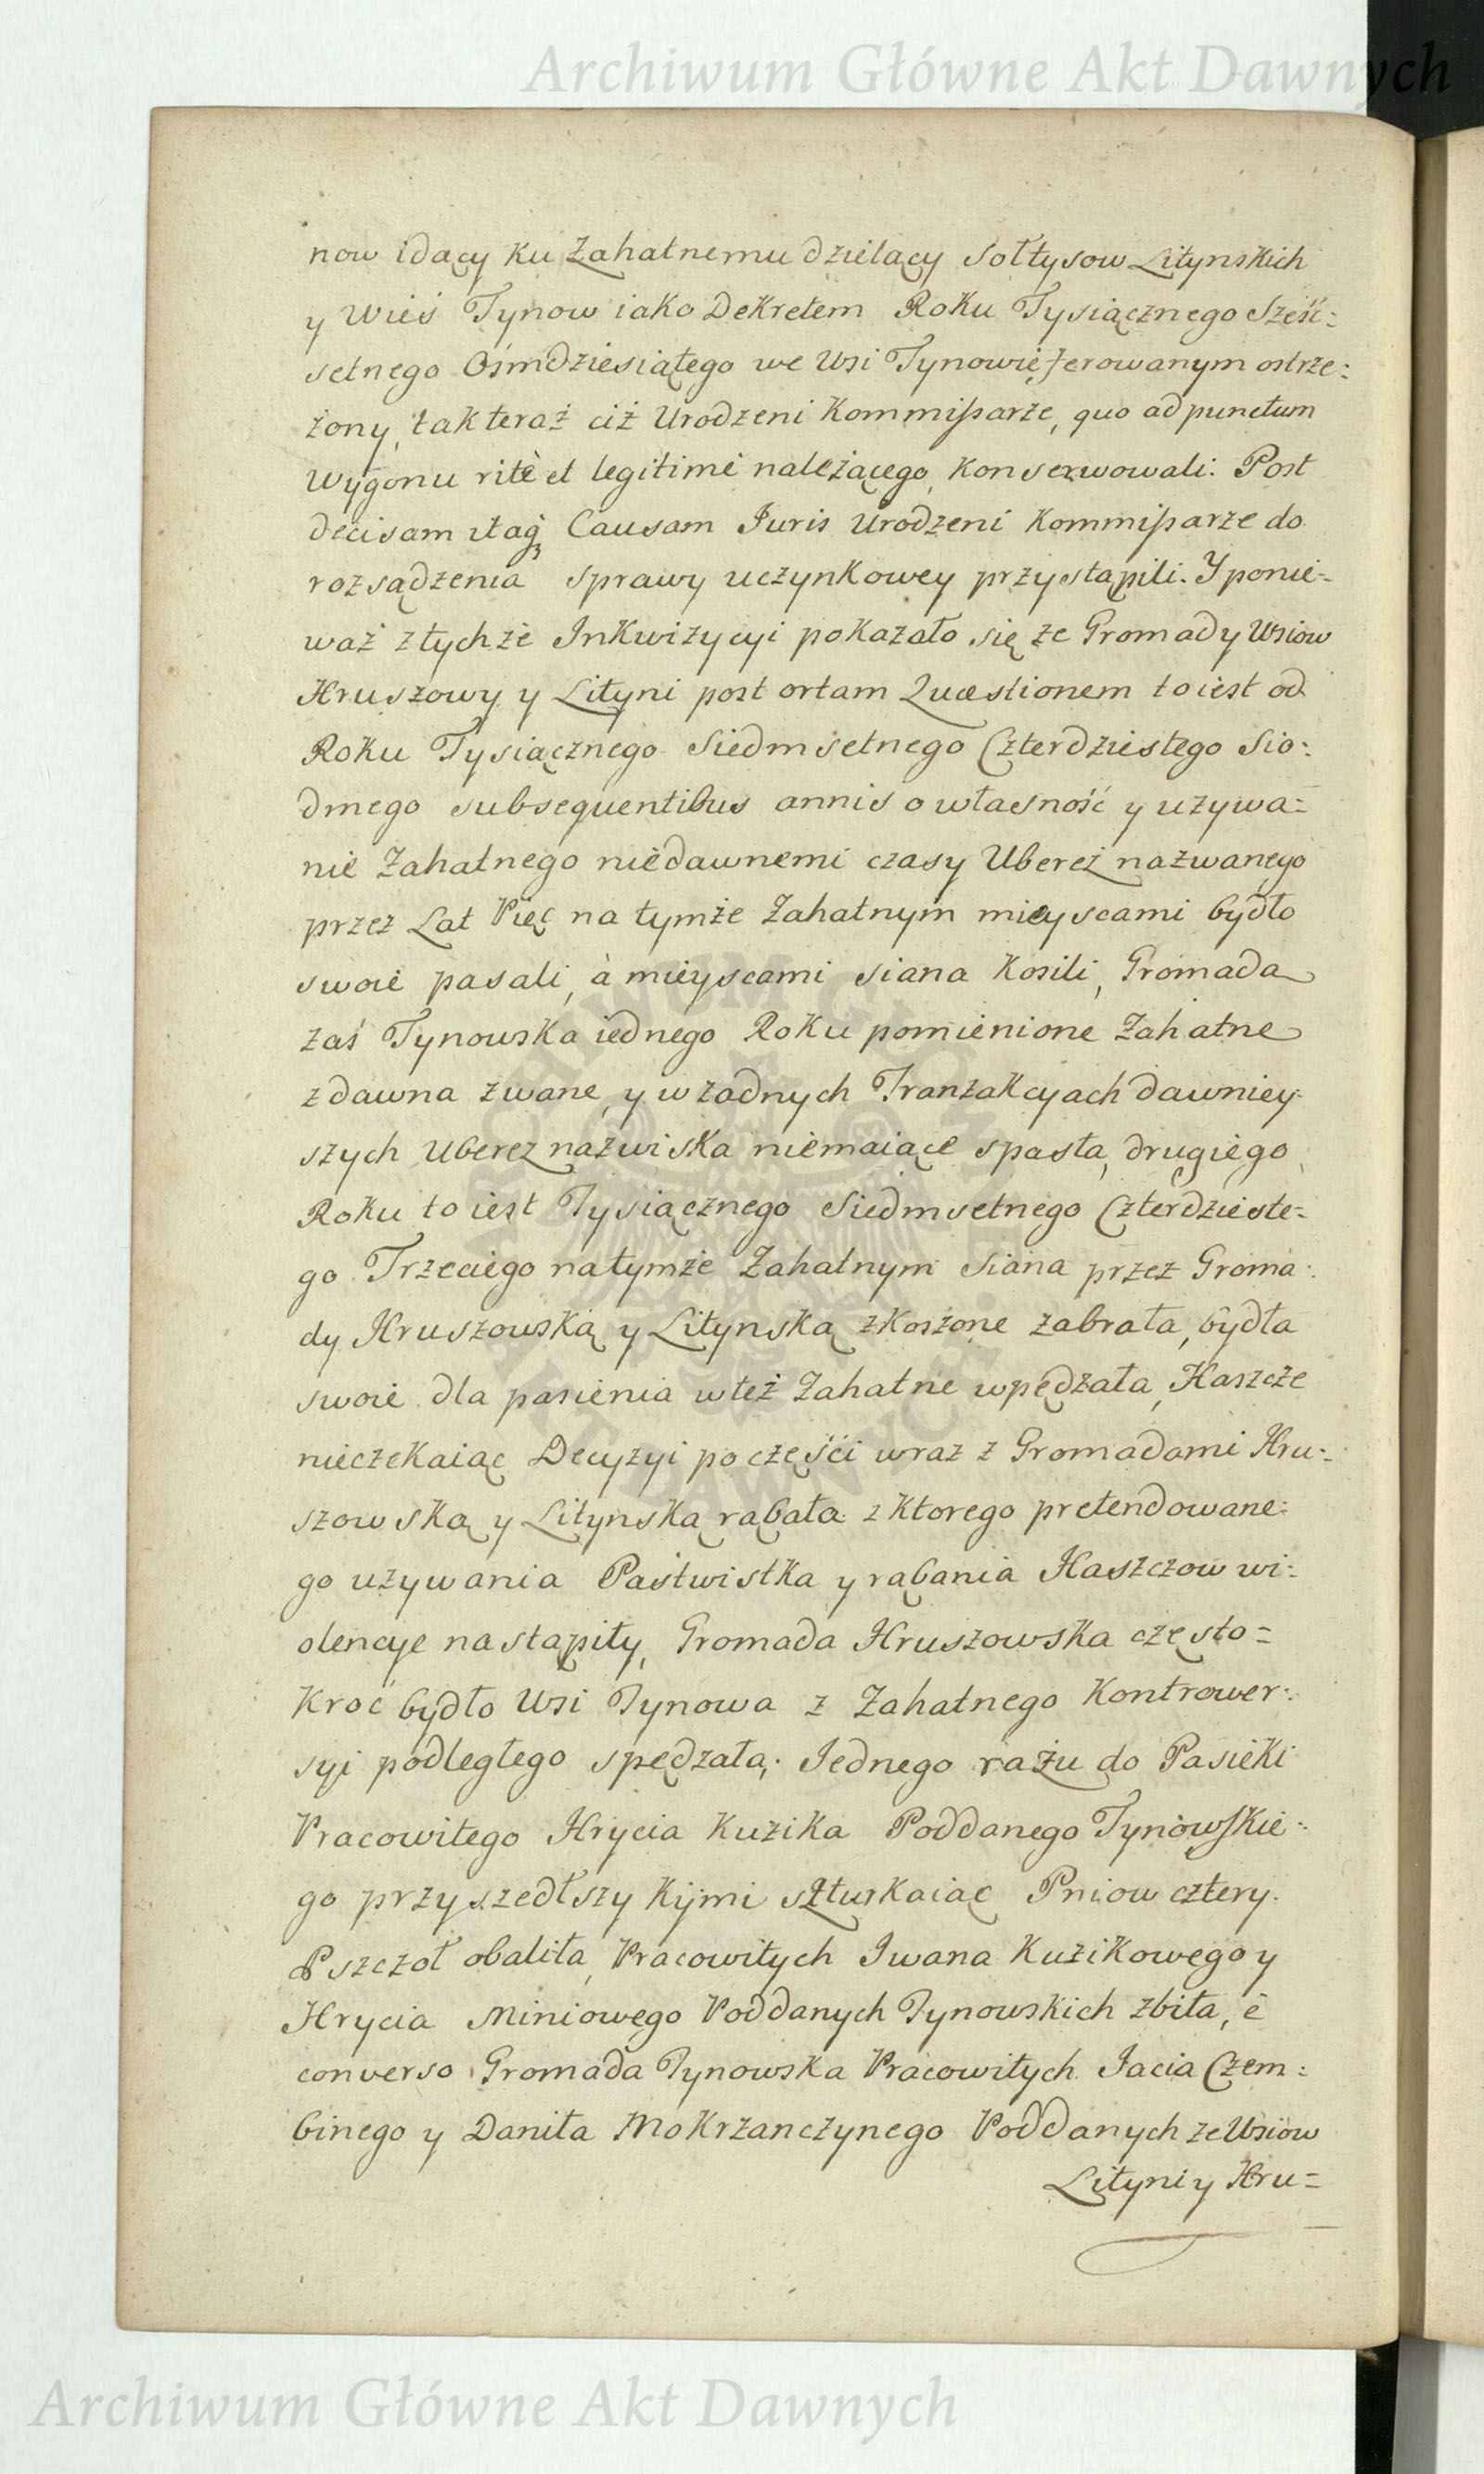 Archiwum Główne Akt Dawnych
now idący ku Zahatnemu dzielący Sołtysow Litynskich
y Wieś Tynow iako Dekretem Roku Tysiącznego Sześć:
setnego Ośmdziesiątego we Wsi Tynowie ferowanym ostrze:
żony, tak teraż ciż Urodzeni Kommißarże, quo ad punctum
Wygonu ritè et legitimè należącego, konserwowali: Post
decisam itaq3 Causam Juris Urodzeni Kommißarże do
rozsądzenia sprawy uczynkowey przystąpili. Y ponie=
waż z tychże Inkwizycyi pokazało się że Gromady Wsiow
Hruszowy y Lityni post ortam Quæstionem to iest od
Roku Tysiącznego Siedmsetnego Czterdziestego Sio:
dmego subsequentibus annis o własność y używa=
nie Zahatnego niedawnemi czasy Ubereż nazwanego
przez Lat Pięć na tymże Zahatnym mieyscami bydło
swoie pasali, à mieyscami siana kosili, Gromada
zaś Tynowska iednego Roku pomienione Zahatne
zdawna zwane, y w żadnych Tranzakcyach dawniey:
szych Uberez nazwiska niemaiące spasła, drugiego
Roku to iest Tysiącznego Siedmsetnego Czterdzieste=
go Trzeciego natymże Zahatnym Siana przez Groma:
dy Hruszowską y Litynską zkoszone zabrała, bydła
swoie dla pasienia wteż Zahatne wpędzała, Haszcze
nieczekaiąc Decyzyi po części wraz z Gromadami Hru:
szowską y Litynską rąbała z ktorego pretendowane:
go używania Pastwiska y rąbania Haszczow wi:
olencye nastąpiły, Gromada Hruszowska często=
kroć bydło Wsi Tynowa z Zahatnego Kontrower:
syi podległego spędzała; Jednego razu do Pasieki
Pracowitego Hrycia Kuzika Poddanego Tynowskie:
go przyszedłszy kijmi szturkaiąc Pniow cztery
Pszczoł obaliła, Pracowitych Iwana Kuzikowego y
Hrycia Miniowego Poddanych Tynowskich zbiła, è
converso Gromada Tynowska Pracowitych Jacia Czem:
binego y Daniła Mokrzanczynego Poddanych ze Wsiow
Lityni y Hru=
Archiwum Główne Akt Dawnych